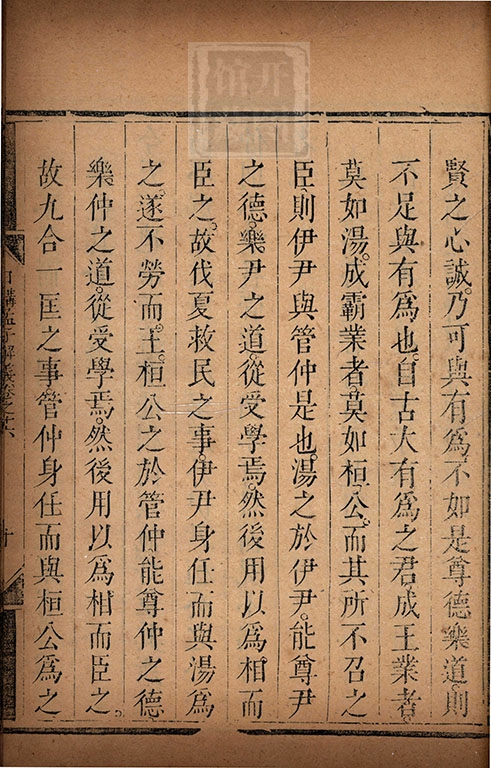 賢之心誠。乃可與有爲。不如是尊德樂道。則
不足與有爲也。自古大有爲之君。成王業者。
莫如湯。成霸業者。莫如桓公。而其所不召之
臣。則伊尹與管仲是也。湯之於伊尹。能尊尹
之德。樂尹之道。從受學焉。然後用以爲相而
臣之。故伐夏救民之事。伊尹身任而與湯爲
之。遂不勞而王。桓公之於管仲。能尊仲之德
樂仲之道。從受學焉。然後用以爲相而臣之。
故九合一匡之事。管仲身任而與桓公爲之
日講孟子解義卷之六
十